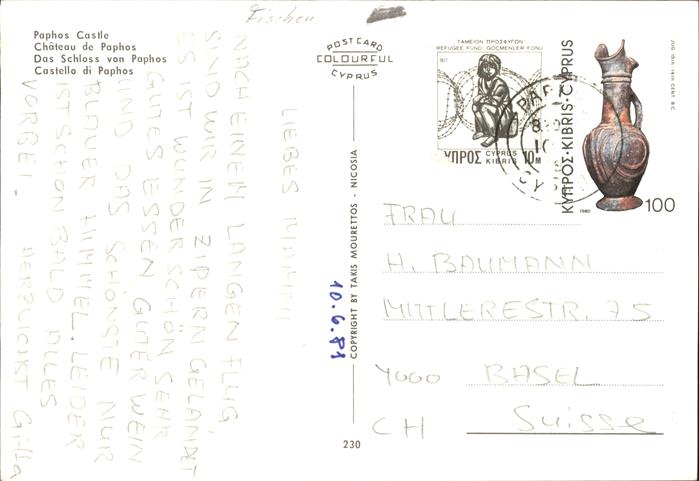 Fischen
Paphos Castle
Château de Paphos
Das Schloss von Paphos
Castello di Paphos
POST CARD
COLOURFUL
CYPRUS
LIEBES MAMMI
NACH EINEM LANGEN FLUG
SIND WIR IN ZIPERN GELANDET
ES IST WUNDERSCHÖN SEHR
GUTES ESSEN GUTER WEIN
UND DAS SCHÖNSTE NUR
BLAUER HIMMEL. LEIDER
IST SCHON BALD ALLES
VORBEI. HERZLICHST Gitta
10.6.81
COPYRIGHT BY TAKIS MOURETTOS - NICOSIA
230
ΤΑΜΕΙΟΝ ΠΡΟΣΦΥΓΩΝ
REFUGEE FUND GÖÇMENLER FONU
1977
ΚΥΠΡΟΣ CYPRUS KIBRIS 10M
ΚΥΠΡΟΣ·KIBRIS·CYPRUS
JUG 15th-14th CENT. B.C.
1980
100
FRAU
H. BAUMANN
MITTLERESTR. 75
4000 BASEL
CH Suisse